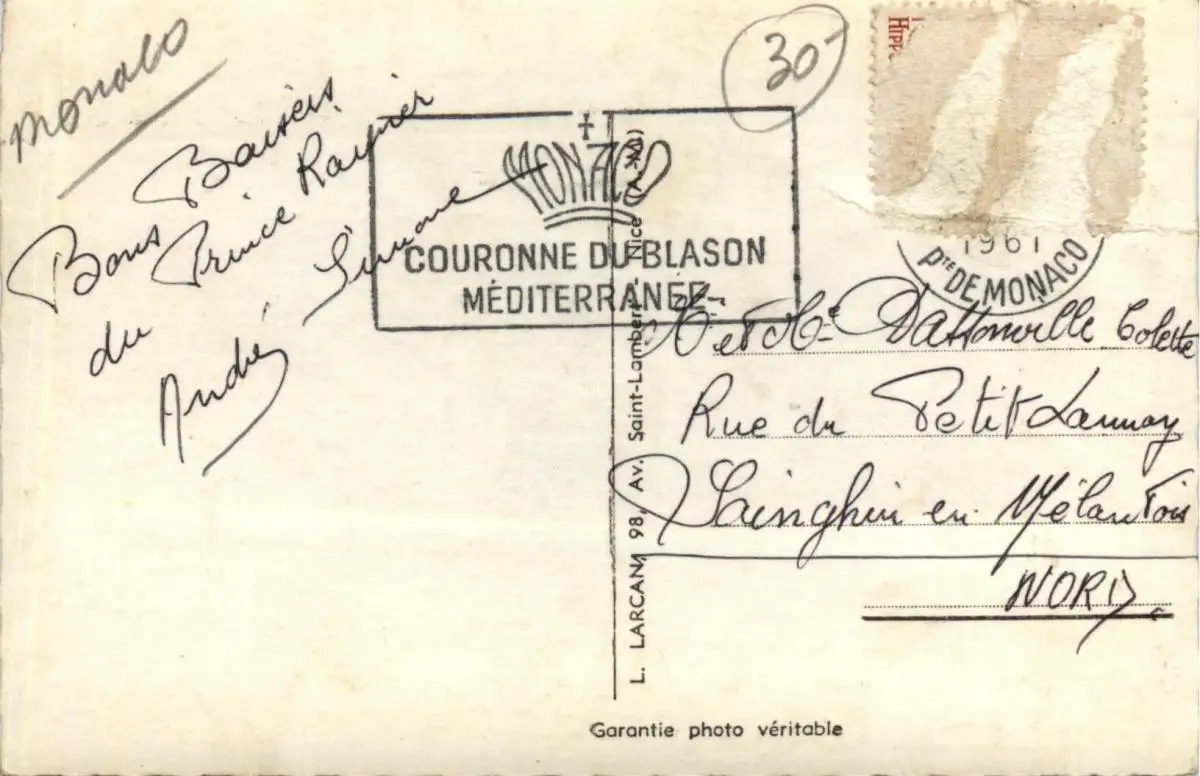 Monaco
30-
Bons Baisers
du Prince Raynier
André Simone
HIPP
MONACO
COURONNE DU BLASON
MÉDITERRANÉE
1961
PTÉ DE MONACO
M et Me Dattonville Colette
Rue du Petit Launay
Sainghin en Mélantois
NORD.
L. LARCAN, 98, Av. Saint-Lambert - Nice (A.-M.)
Garantie photo véritable